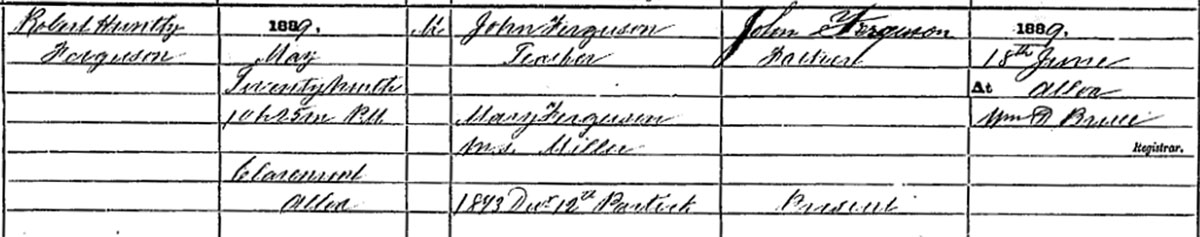 Robert Huntly
Ferguson
1889.
May
Twentyninth
10h 25m P.M.
Claremont
Alloa
M.
John Ferguson
Teacher
Mary Ferguson
m.s. Miller
1873 Decr 12th Partick
John Ferguson
Father
Present
1889.
18th June
At Alloa
Wm D Bruce
Registrar.